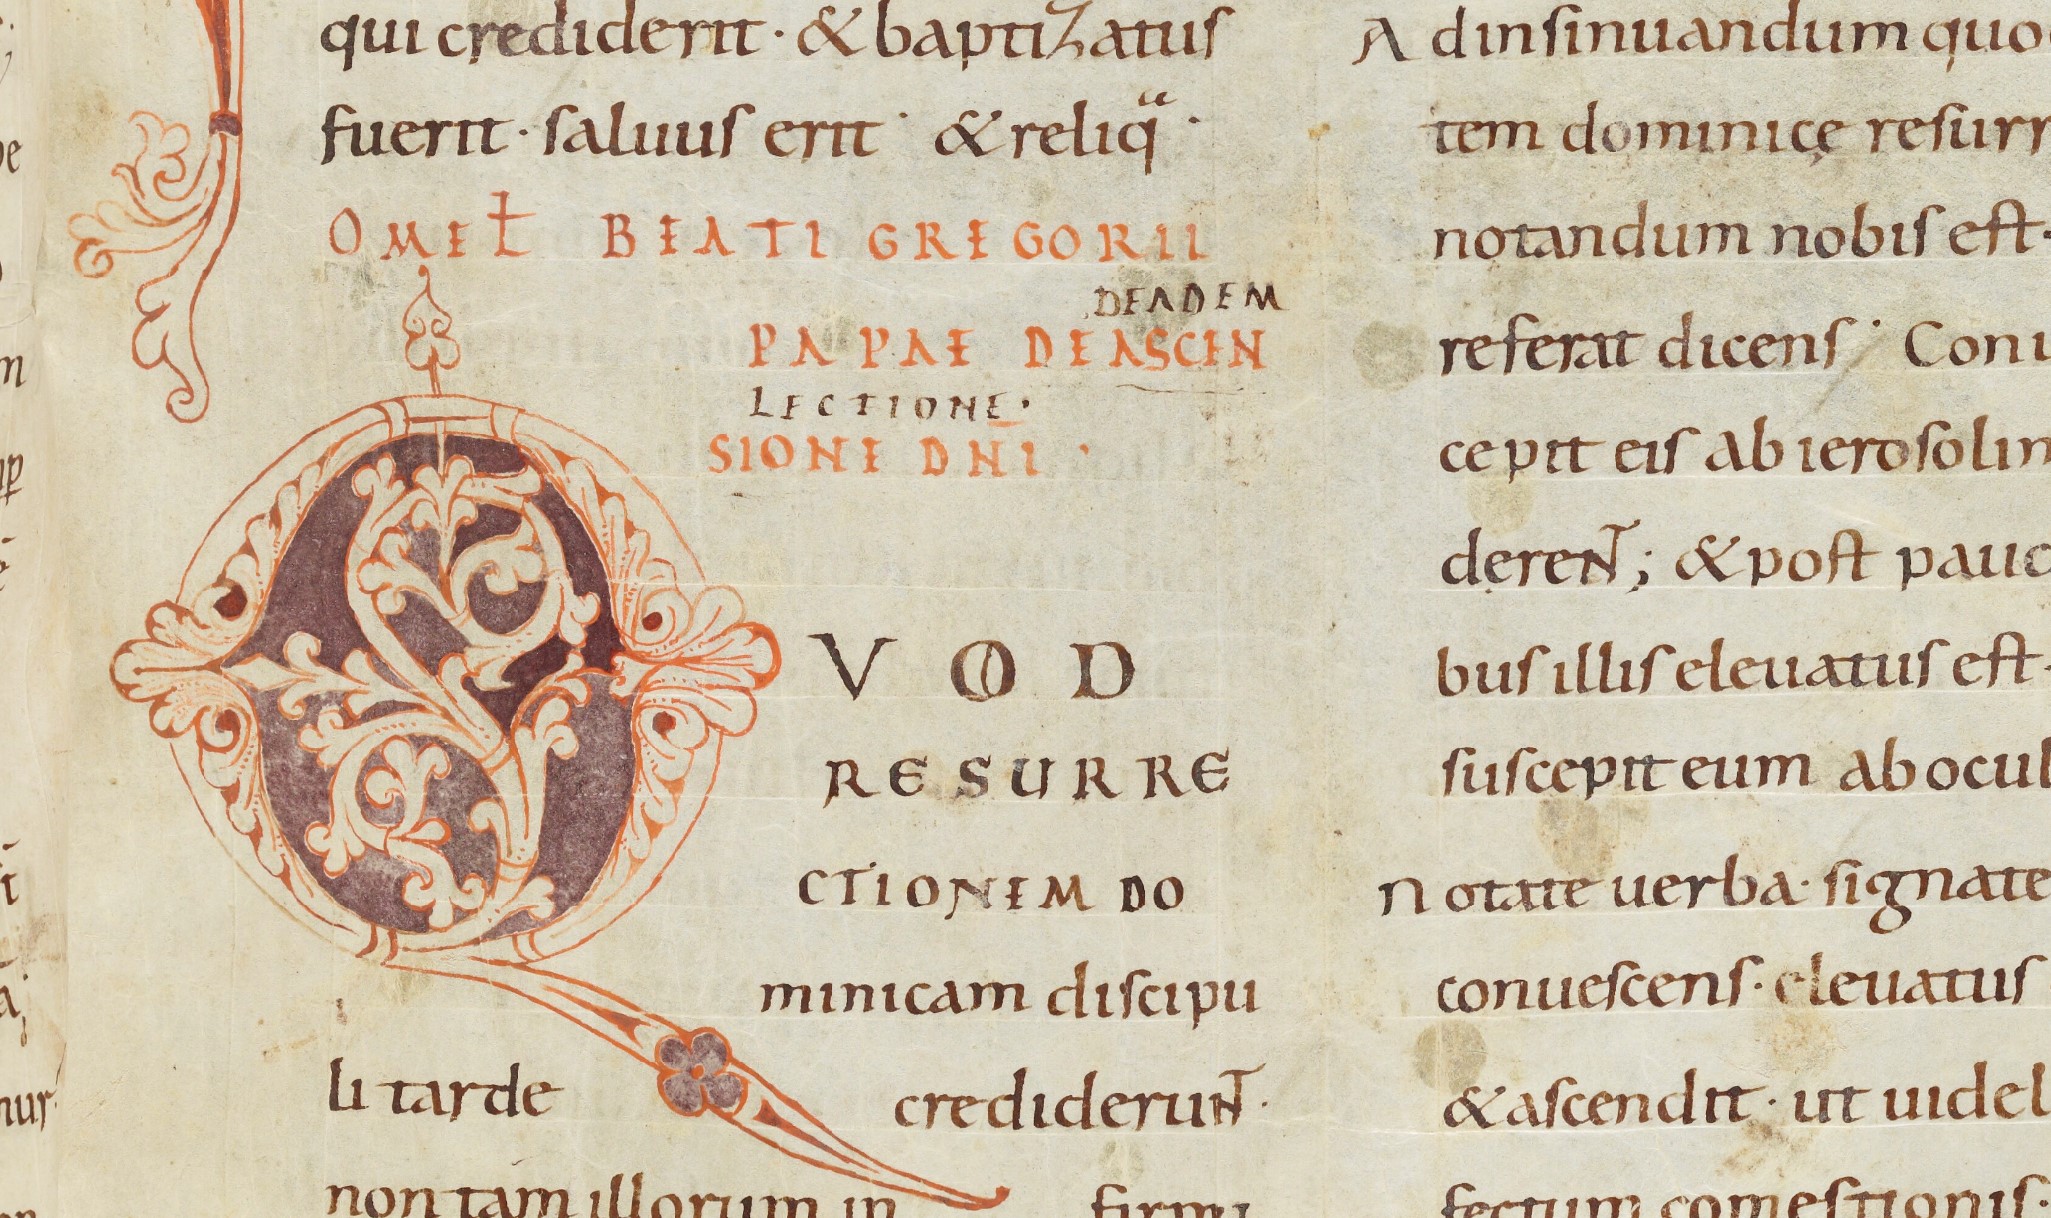 qui crediderit · & baptizatus
fuerit · saluus erit · & reliq̈
OMEƚ BEATI GREGORII
DEADEM
PAPAE DE ASCEN
LECTIONE ·
SIONE DNI ·
QVOD
RESURRE
CTIONEM DO
minicam discipu
li tarde crediderunt ·
non tam illorum in firmi
Ad insinuandum quo
tem dominicę resurr
notandum nobis est ·
referat dicens · Con
cepit eis ab ierosolim
derent; & post pauc
bus illis eleuatus est ·
suscepit eum ab ocul
Notate uerba · signate
conuescens · eleuatus
& ascendit · ut uidel
fectum comestionis ·